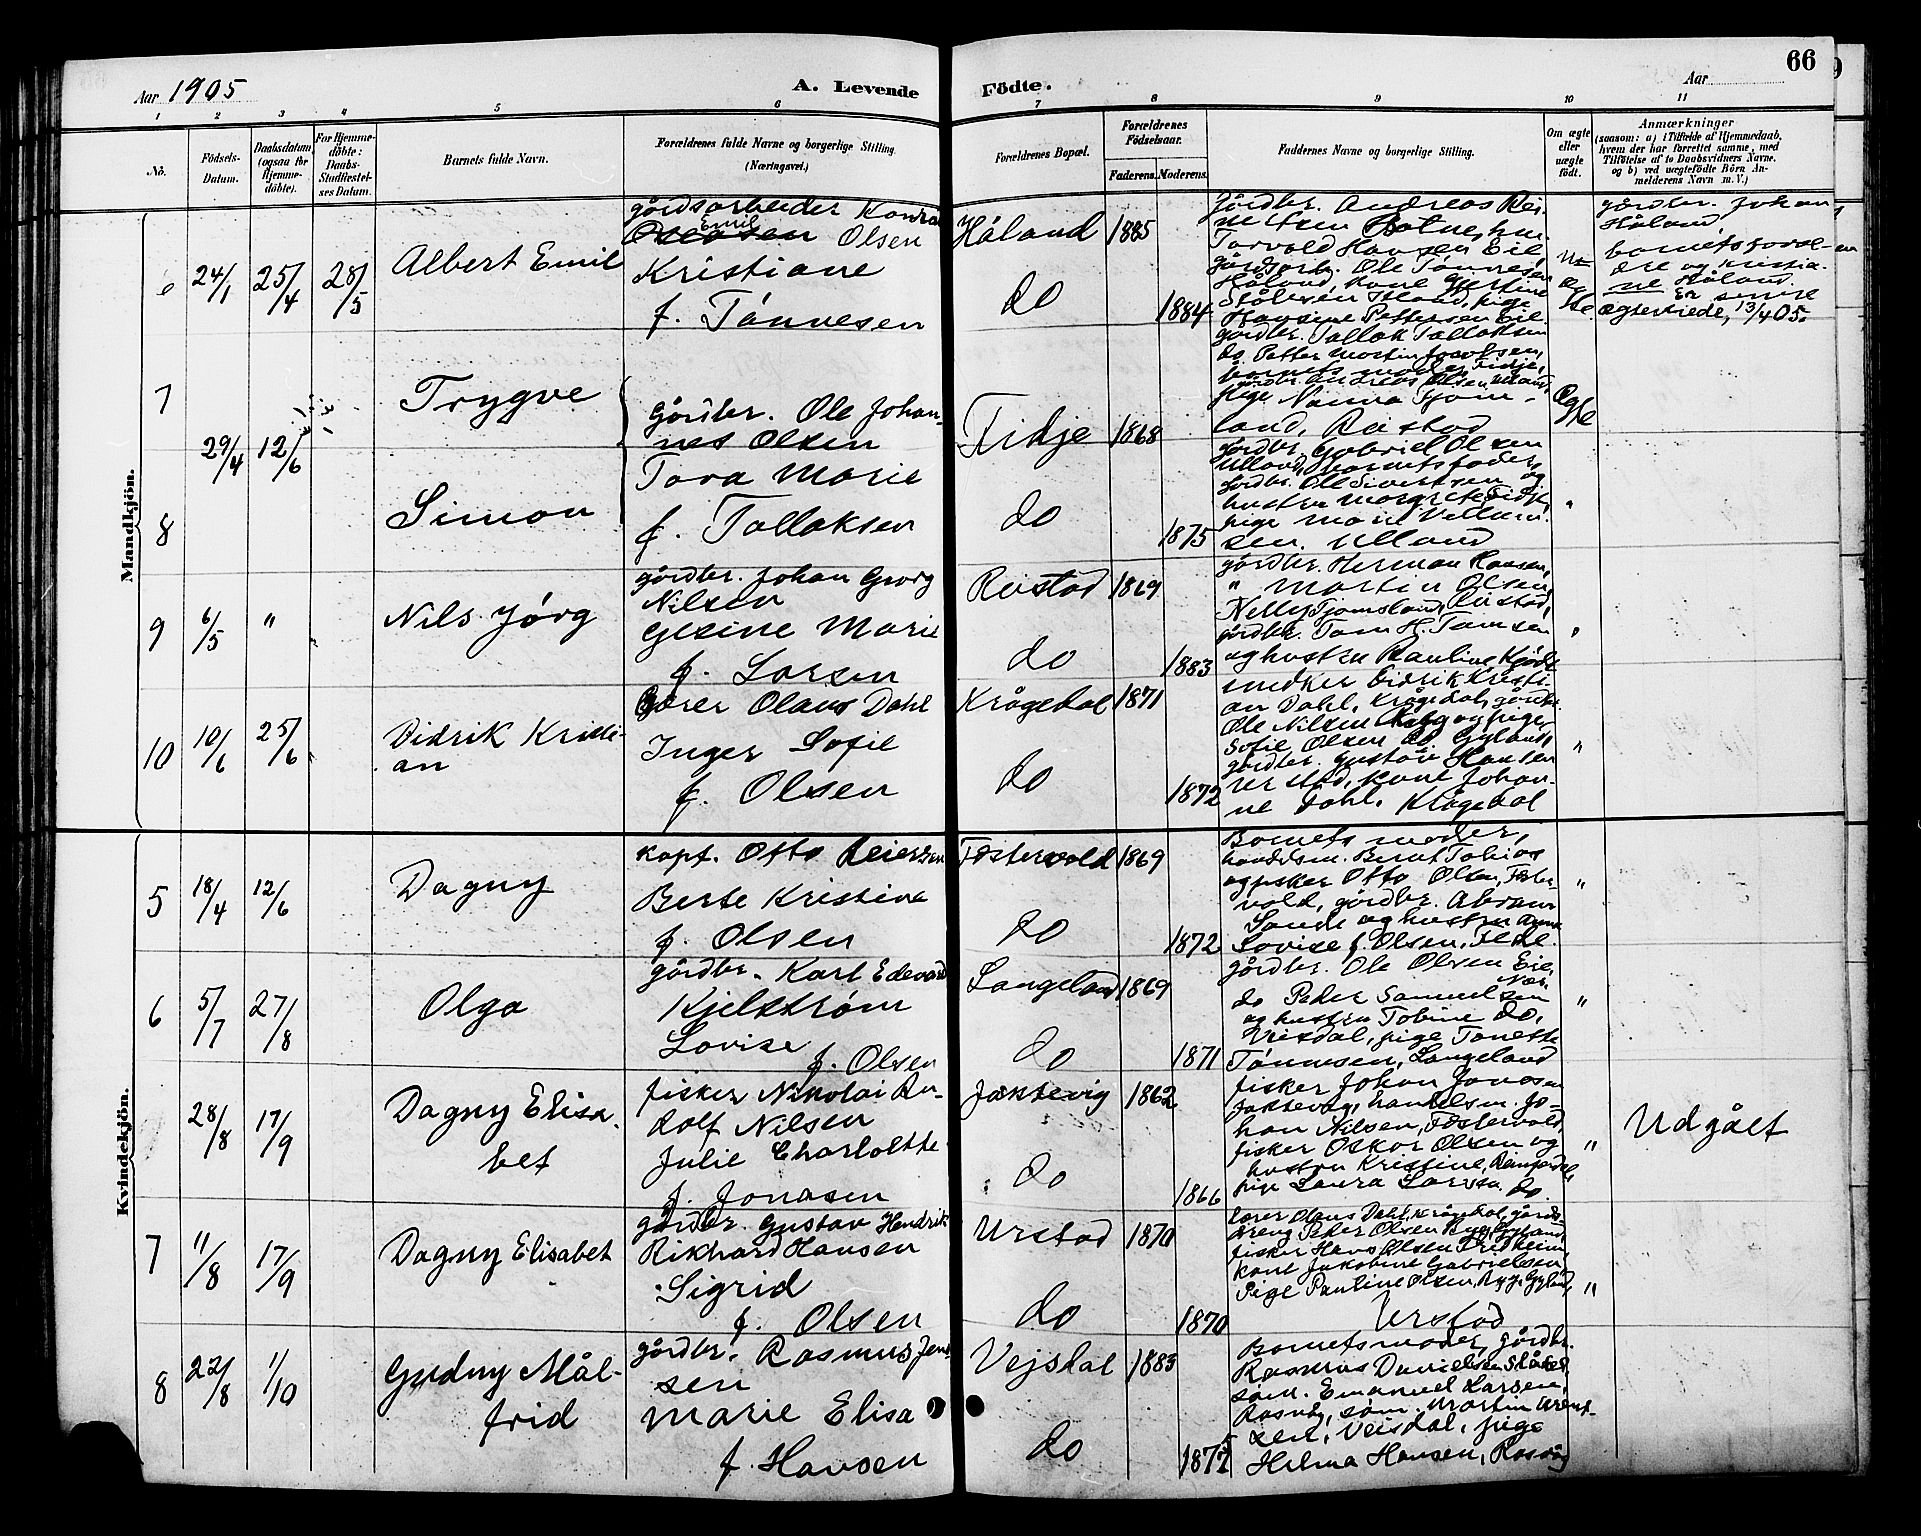 Aar 1905
A. Levende Födte.
Aar
66
1 2 3 4 5 6 7 8 9 10 11
No.
Födsels-Datum.
Daabsdatum (ogsaa for Hjemmedöbte).
For Hjemmedöbte: Daabs-Stadfæstelses Datum.
Barnets fulde Navn.
Forældrenes fulde Navne og borgerlige Stilling. (Næringsvei.)
Forældrenes Bopæl.
Forældrenes Födselsaar.
Faderens. Moderens.
Faddernes Navne og borgerlige Stilling.
Om ægte eller uægte födt.
Anmærkninger
(saasom: a) i Tilfælde af Hjemmedaab,
hvem der har forrettet samme, med
Tilföielse af to Daabsvidners Navne.
og b) ved uægtefödte Börn Anmelderens Navn m. V.)
Mandkjön.
6 24/1 25/4 28/5
Albert Emil
gårdsarbeider Konrad
Emil Olsen
Kristiane
f. Tønnesen
Håland
do
1885
1884
gårdbr. Andreas Rei-
Torvald Hansen Eie
gårdsarb. Ole Tønnesen
Håland, Kone Gjertine
Hansine Pettersen Eie
U-
æg
te
gårdbr. Johan
Håland,
barnets foræl-
dre og Kristia-
ne Håland.
En senere
ægteviede, 13/4 05.
7
29/4 12/6
Trygve
8
Simon
gårdbr. Ole Johan-
nes Olsen
Tora Marie
f. Tallaksen
Fidje
do
1868
1875
gårdbr. Tallak Tallaksen
do. Petter Martin Jacobsen,
barnets moder, Fidje,
gårdbr. Andreas Olsen Uland,
pige Nanna Tjom-
land, Rastad
gårdbr. Gabriel Olsen
Ulland, barnets fader,
gårdbr. Ole Sivertsen og
hustru Margrete Fidje,
pige Marie Vellum-
sen. Ulland
Æg
te
"
9 6/5 "
Nils Jørg
gårdbr. Johan Georg
Nilsen
Gesine Marie
f. Larsen
Reistad
do
1869
1883
gårdbr. Herman Hansen,
" Martin Olsen,
Nelly Tjomsland, Ristad,
gårdbr. Tom H. Tomsen
og hustru Pauline
"
10 10/6 25/6
Didrik Kristi-
an
lærer Olaus Dahl
Inger Sofie
f. Olsen
Krågedal
do
1871
1872
snedker Didrik Kristi-
an Dahl, Krågedal, gårdbr.
Ole Nilsen og pige
Sofie Olsen do Gyland,
gårdbr. Gustav Hansen
Urstad, kone Johan-
ne Dahl. Krågedal
"
Kvindekjön.
5 18/4 12/6
Dagny
kapt. Otto Reiersen
Berte Kristine
f. Olsen
Fostervold
do
1869
1872
Barnets moder,
handelsm. Bernt Tobias
og fisker Otto Olsen, Foster-
vold, gårdbr. Abraham
Sande og hustru Anna
Lovise f. Olsen, Fede.
"
6 5/7 27/8
Olga
gårdbr. Karl Edevard
Kjelstrøm
Lovise
f. Olsen
Langeland
do
1869
1871
gårdbr. Ole Olsen Eie,
do Peder Samuelsen
og hustru Tobine do,
Veisdal, pige Tonette
Tønnesen, Langeland
"
28/8 17/9
Dagny Elisa-
bet
fisker Nikolai Ru-
dolf Nilsen
Julie Charlotthe
f. Jonasen
Jaktevig
do
1862
1866
fisker Johan Jonasen
Jaktevåg, handelsm. Jo-
han Nilsen, Fostervold,
fisker Oskar Olsen og
hustru Kristine,
pige Laura Larsen. do.
"
Udgået
7 11/8 17/9
Dagny Elisabet
gårdbr. Gustav Hendrik
Rikhard Hansen
Sigrid
f. Olsen
Urstad
do
1870
1870
lærer Olaus Dahl, Krågedal, gårds-
dreng Peder Olsen Ryg, Gyland
fisker Hans Olsen Fridheim,
kone Jakobine Gabrielsen,
Pige Pauline Olsen, Ryg, Gyland,
Urstad
"
8 22/8 1/10
Gudny Mål-
frid
gårdbr. Rasmus Jen-
sen
Marie Elisa
f. Hansen
Vejsdal
do
1883
1877
Barnets moder, gårdbr.
Rasmus Danielsen
søm. Emanuel Larsen,
Rasvåg, søm. Martin Arent-
sen, Veisdal, pige
Helma Hansen, Rasvåg